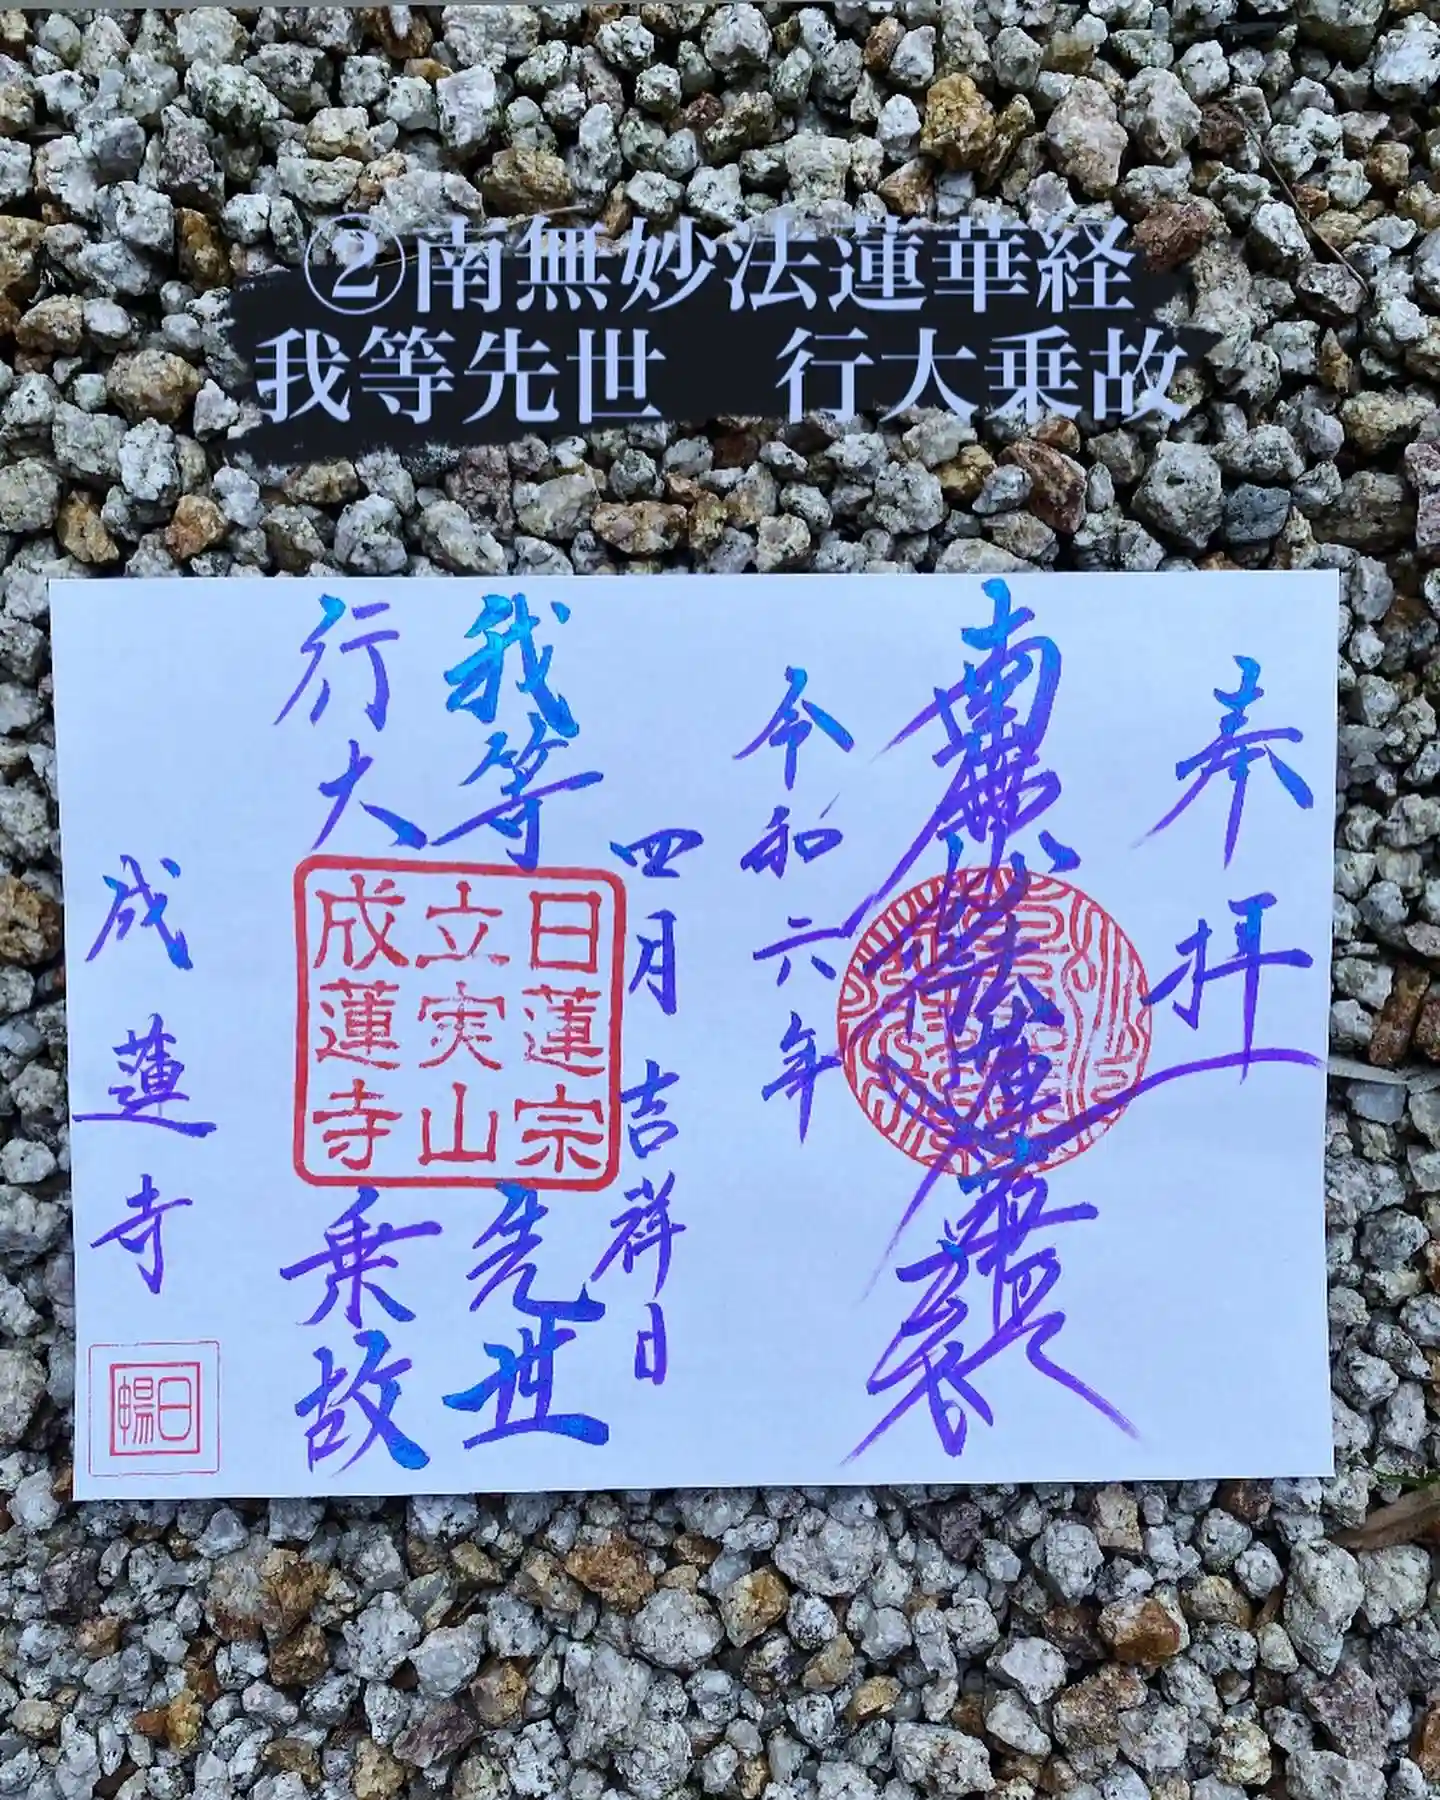 ②南無妙法蓮華経
我等先世　行大乗故
奉拝
南無妙法蓮華経
令和六年
四月吉祥日
我等先世
行大乗故
日蓮宗
立実山
成蓮寺
成蓮寺